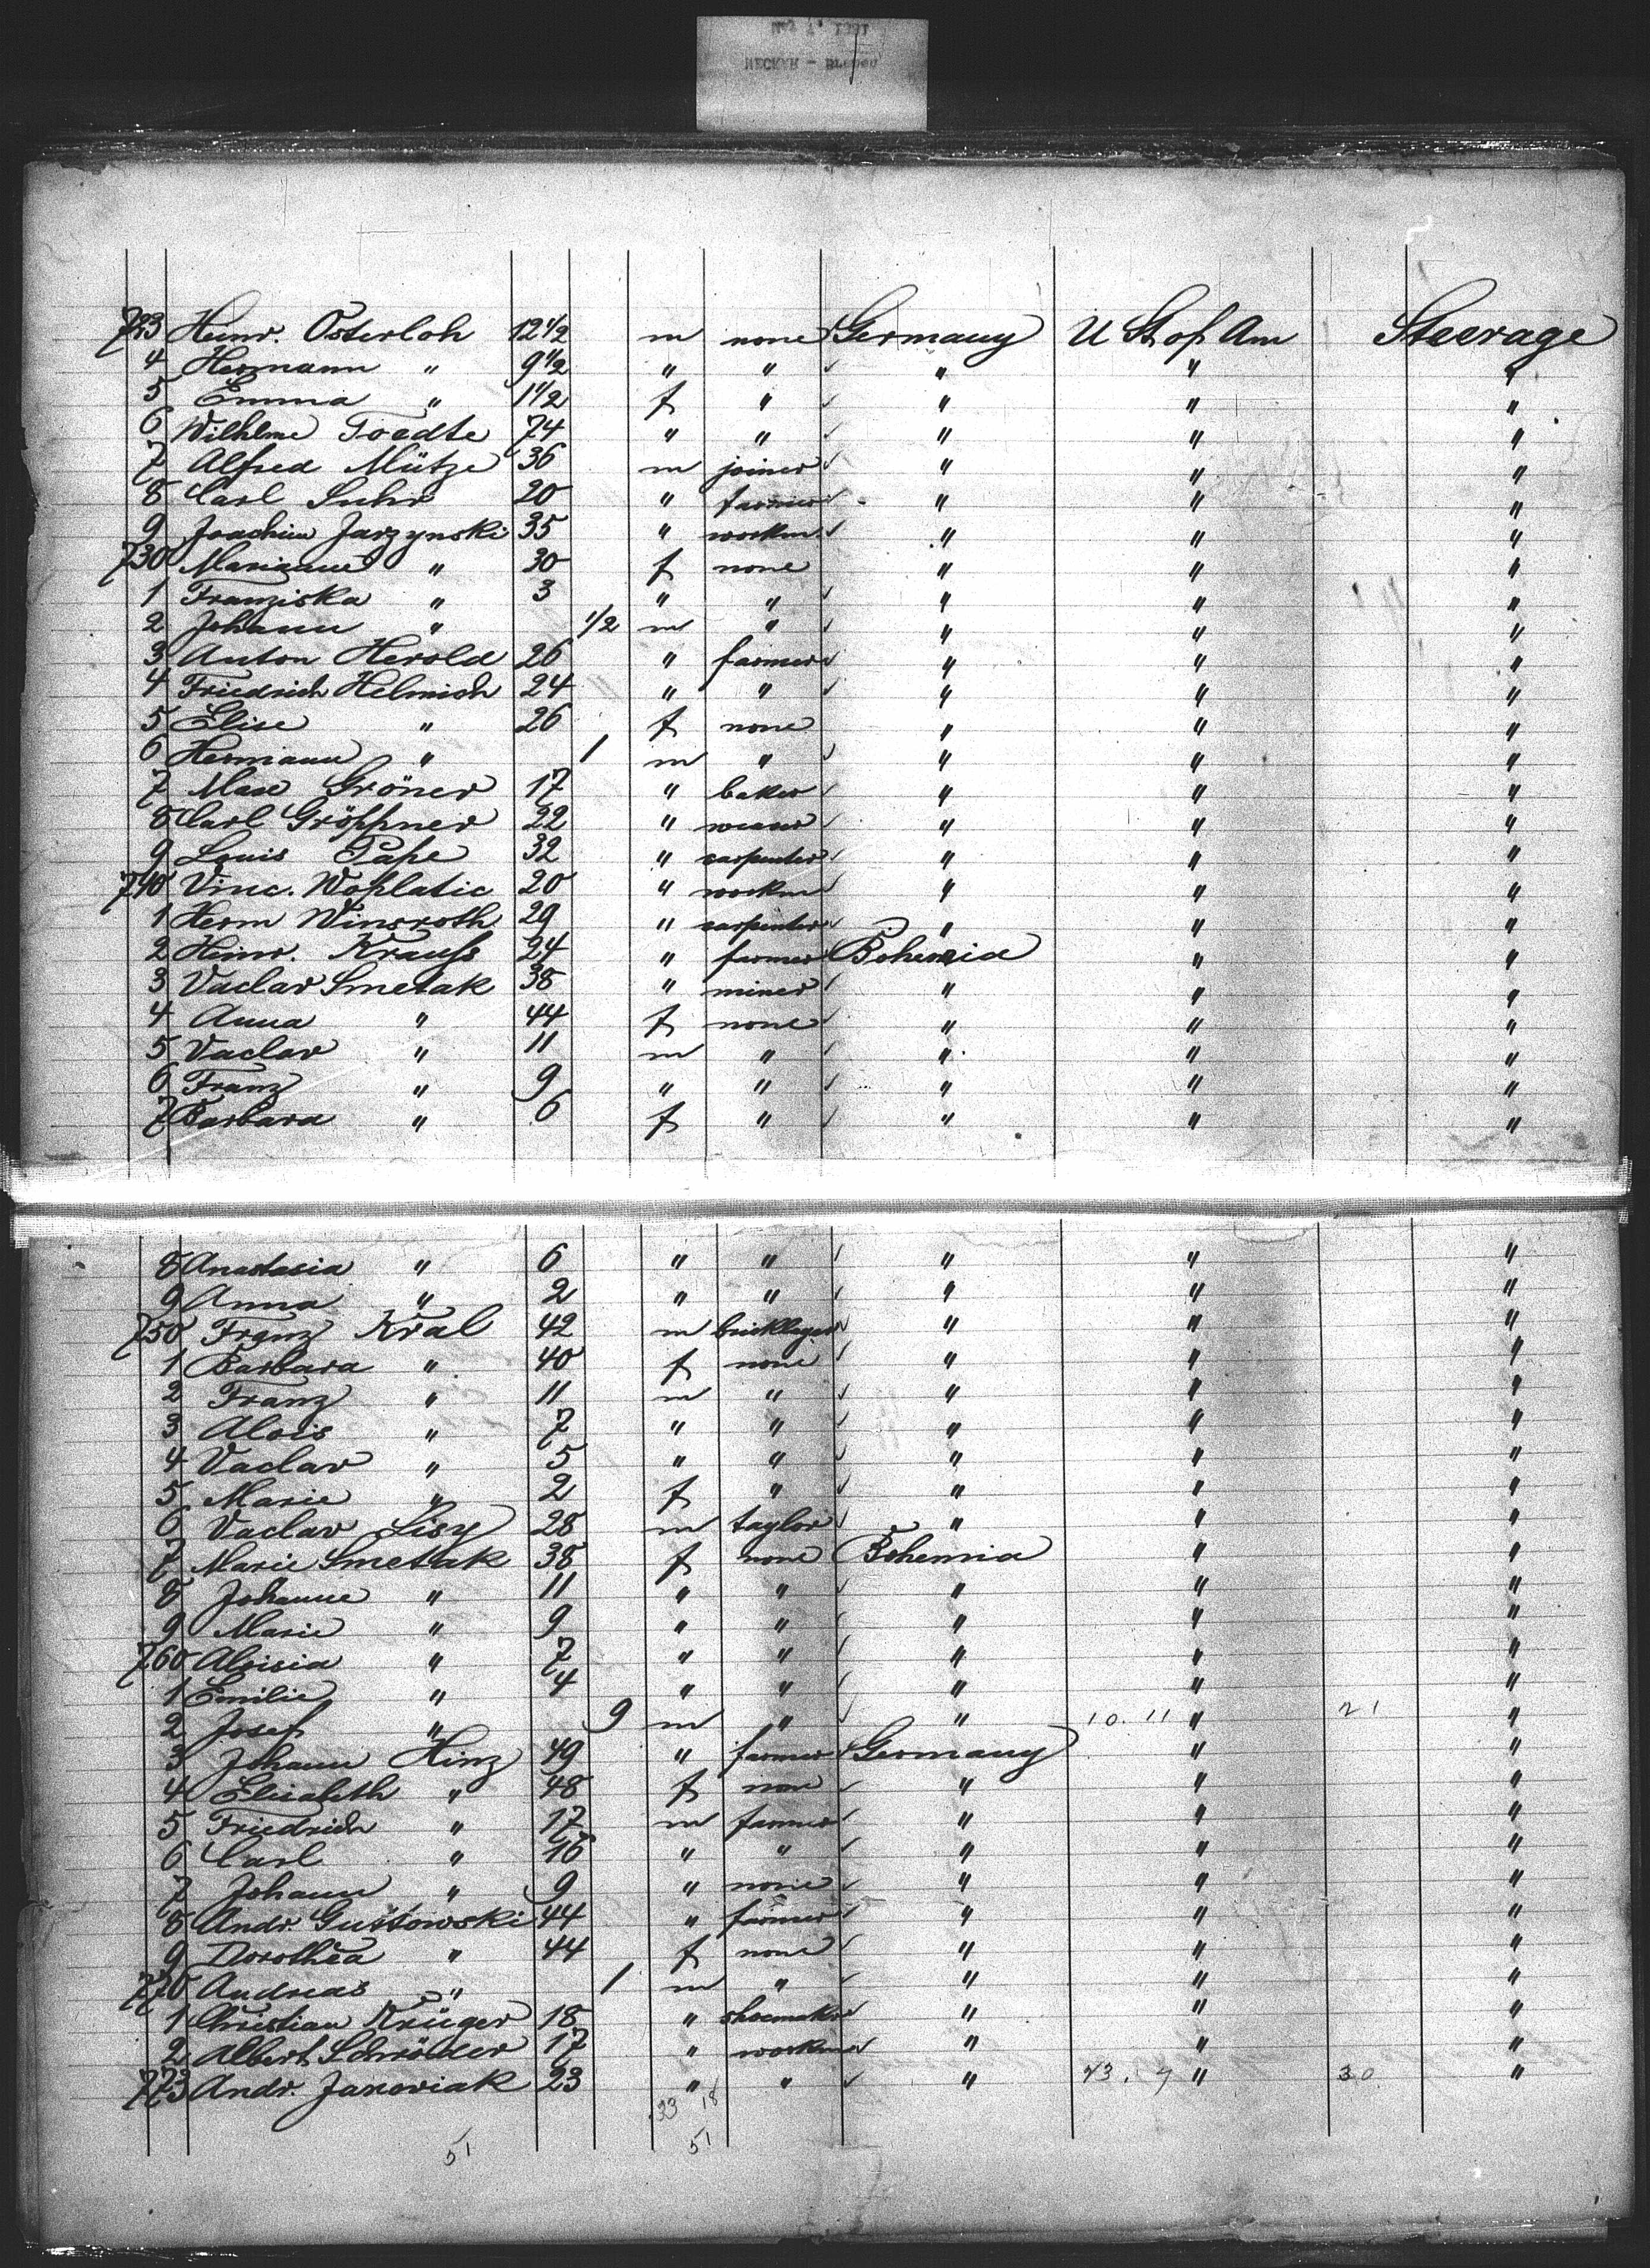 NECKAR - Bremen
723 Heinr. Osterloh 12 1/2 m none Germany U St of Am Steerage
4 Hermann " 9 1/2 " " " " "
5 Emma " 1 1/2 f " " " "
6 Wilhlme Toedte 74 " " " " "
7 Alfred Mütze 36 m joiner " " "
8 Carl Suhr 20 " farmer " " "
9 Joachim Jarzynski 35 " workm " " "
730 Marianne " 30 f none " " "
1 Franziska " 3 " " " " "
2 Johann " 1/2 m " " " "
3 Anton Herold 26 " farmer " " "
4 Friedrich Helmich 24 " " " " "
5 Elise " 26 f none " " "
6 Hermann " 1 m " " " "
7 Max Gröner 17 " baker " " "
8 Carl Gröppner 22 " weaver " " "
9 Louis Pape 32 " carpenter " " "
740 Vinc. Woplatic 20 " workm " " "
1 Herm Winsroth 29 " carpenter " " "
2 Heinr. Krauss 24 " farmer Bohemia " "
3 Vaclav Smetak 38 " miner " " "
4 Anna " 44 f none " " "
5 Vaclav " 11 m " " " "
6 Franz " 9 " " " " "
7 Barbara " 6 f " " " "
8 Anastasia " 6 " " " " "
9 Anna " 2 " " " " "
750 Franz Kral 42 m bricklayer " " "
1 Barbara " 40 f none " " "
2 Franz " 11 m " " " "
3 Alois " 7 " " " " "
4 Vaclav " 5 " " " " "
5 Marie " 2 f " " " "
6 Vaclav Lisy 28 m taylor " " "
7 Marie Smetak 38 f none Bohemia " "
8 Johanne " 11 " " " " "
9 Marie " 9 " " " " "
760 Aloisia " 7 " " " " "
1 Emilie " 4 " " " " "
2 Josef " 9 m " " 10. 11 " 21 "
3 Johann Hinz 49 " farmer Germany " "
4 Elisabeth " 48 f none " " "
5 Friedrich " 17 m farmer " " "
6 Carl " 16 " " " " "
7 Johann " 9 " none " " "
8 Andr. Gustowski 44 " farmer " " "
9 Dorothea " 44 f none " " "
770 Andreas " 1 m " " " "
1 Christian Krüger 18 " shoemaker " " "
2 Albert Schröder 17 " workm " " "
773 Andr. Janoviak 23 " " " 43. 7 " 30 "
33 18
51 51